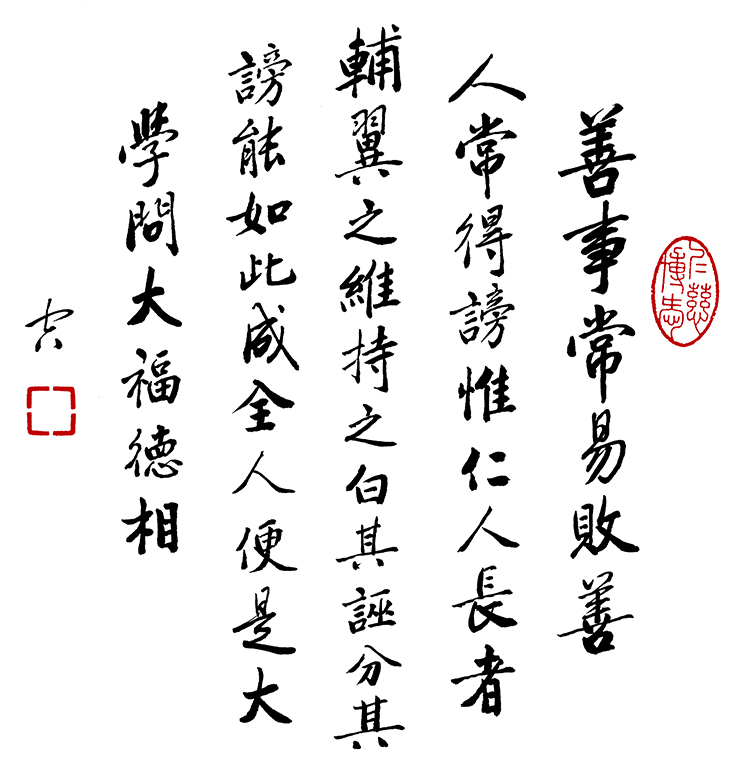 仁慈博愛
善事常易敗善
人常得謗惟仁人長者
輔翼之維持之白其誣分其
謗能如此成全人便是大
學問大福德相